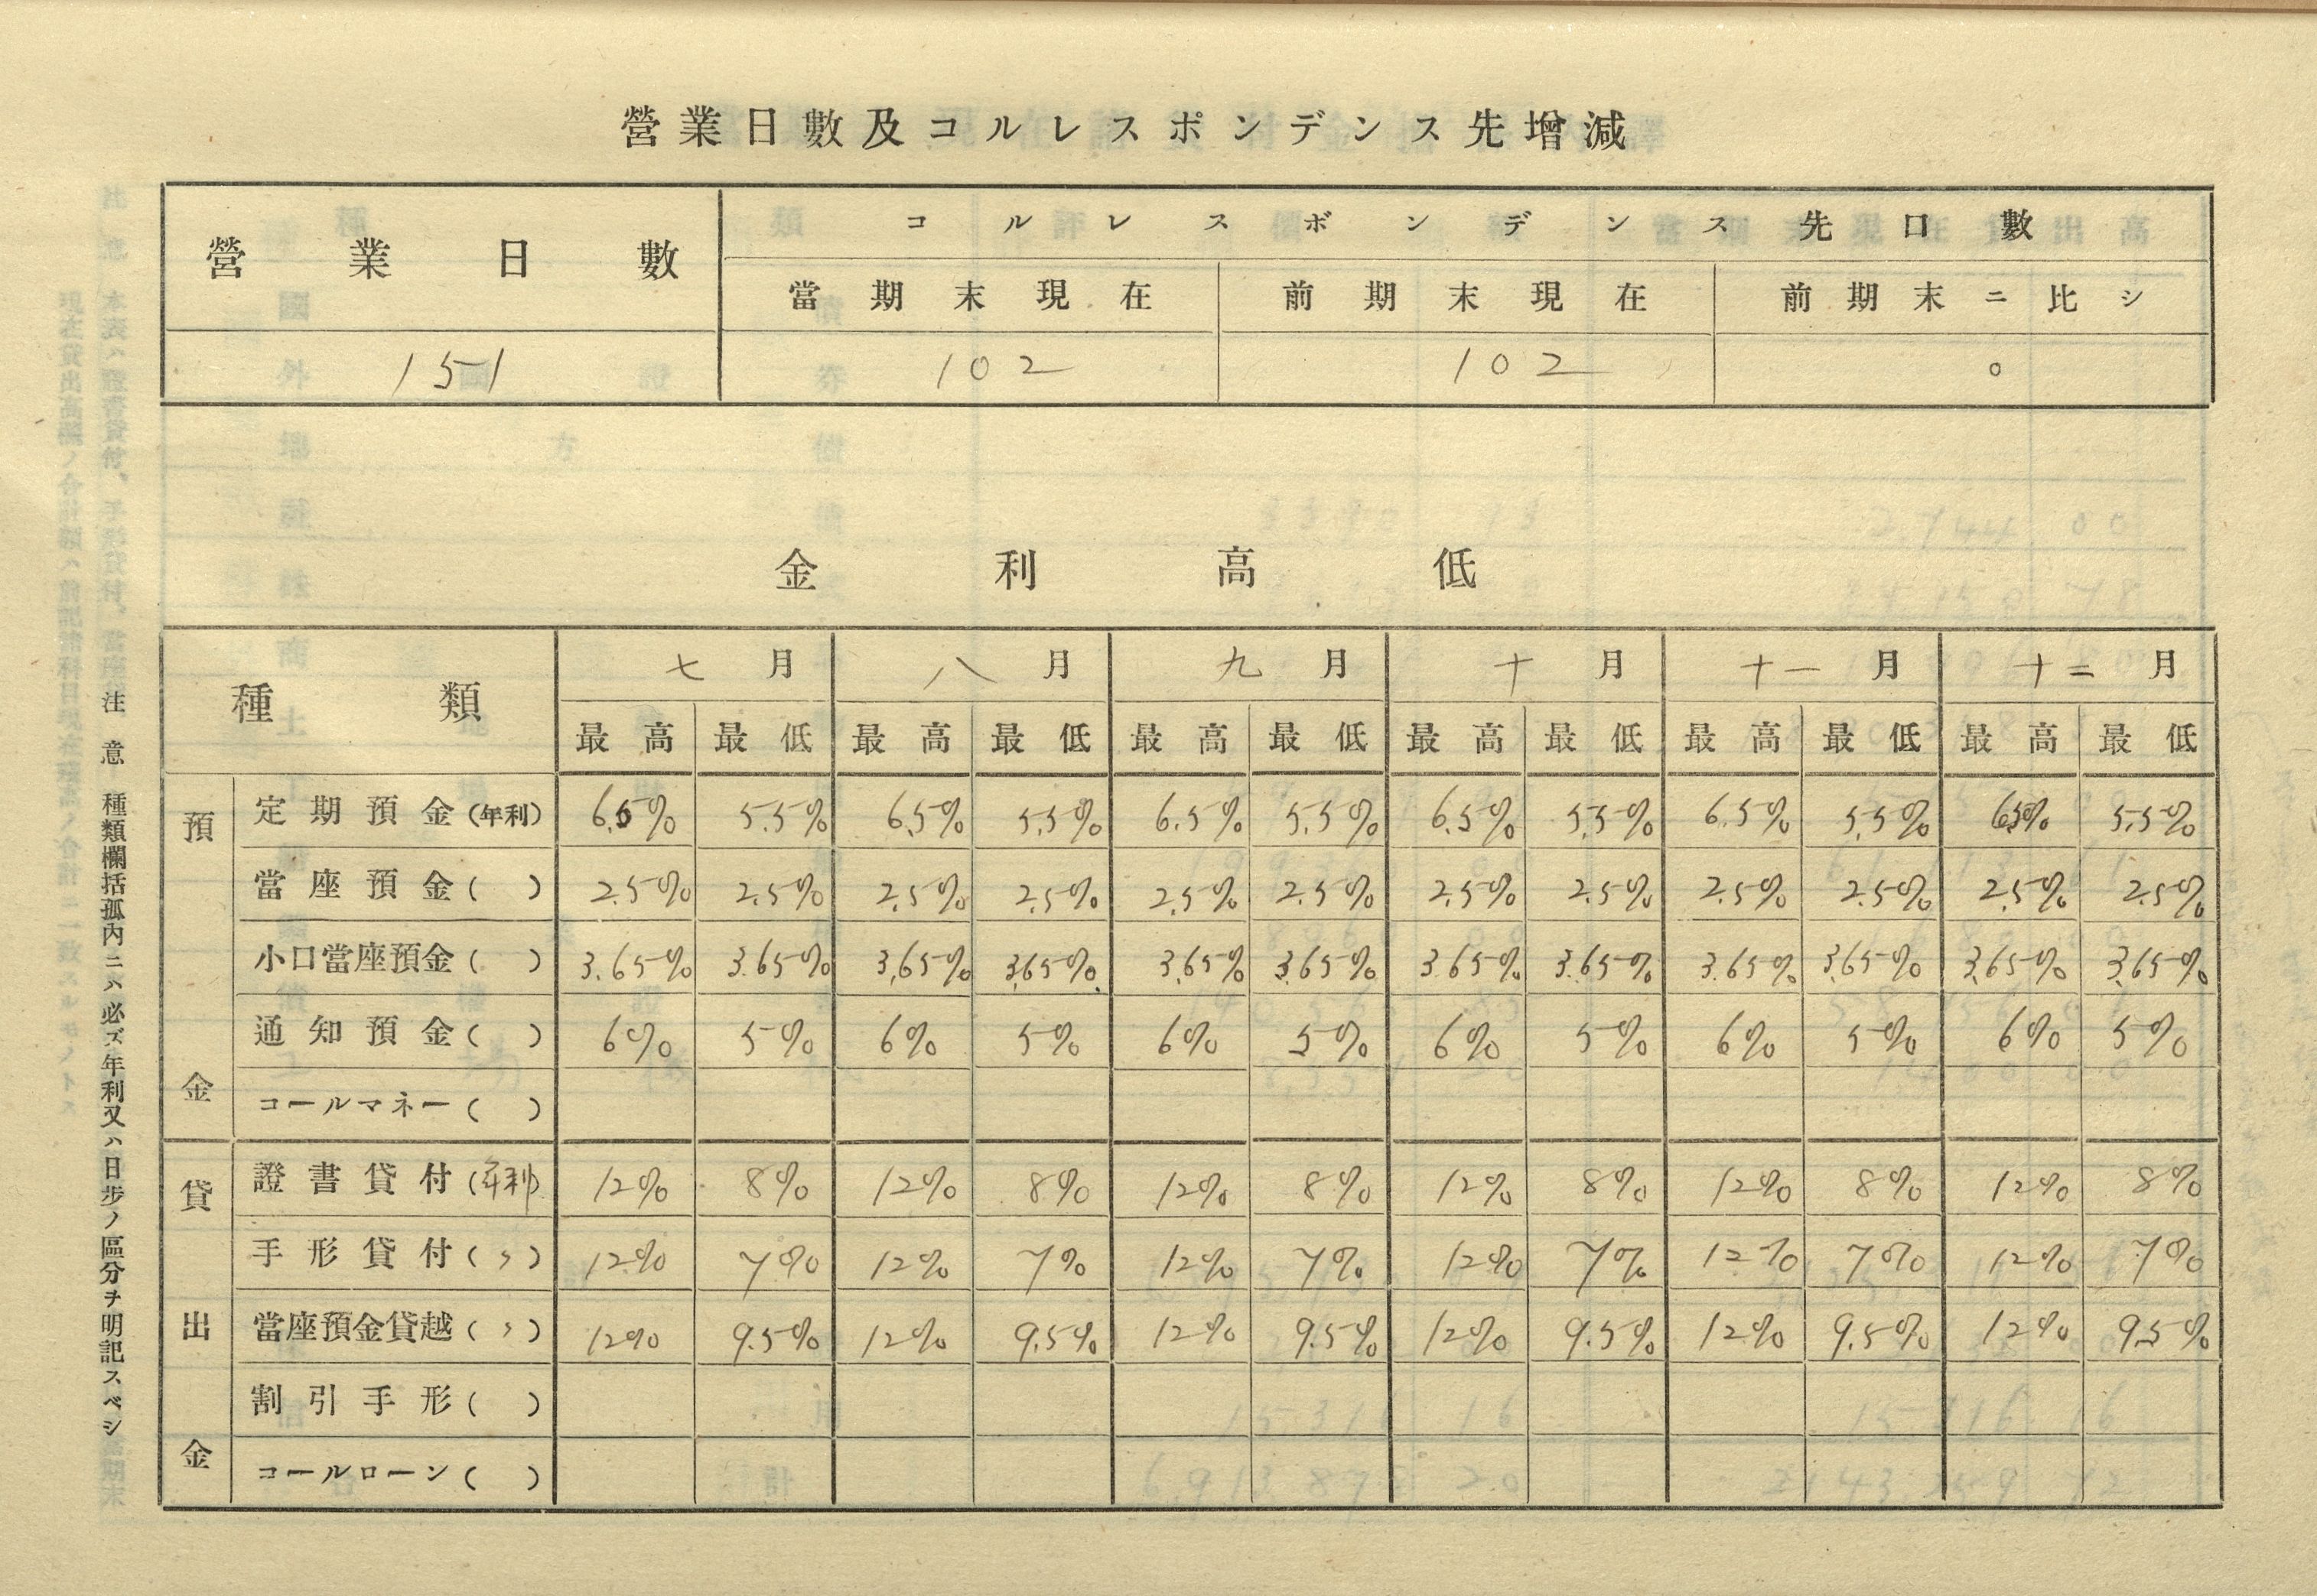 營業日數及コルレスポンデンス先增減
營業日數 コルレスポンデンス先口數
當期末現在 前期末現在 前期末ニ比シ
151 102 102 0
金利高低
種類 七月 八月 九月 十月 十一月 十二月
最高 最低 最高 最低 最高 最低 最高 最低 最高 最低 最高 最低
預金
定期預金(年利) 6.5% 5.5% 6.5% 5.5% 6.5% 5.5% 6.5% 5.5% 6.5% 5.5% 6.5% 5.5%
當座預金( ) 2.5% 2.5% 2.5% 2.5% 2.5% 2.5% 2.5% 2.5% 2.5% 2.5% 2.5% 2.5%
小口當座預金( ) 3.65% 3.65% 3.65% 3.65% 3.65% 3.65% 3.65% 3.65% 3.65% 3.65% 3.65% 3.65%
通知預金( ) 6% 5% 6% 5% 6% 5% 6% 5% 6% 5% 6% 5%
コールマネー( )
貸出金
證書貸付(年利) 12% 8% 12% 8% 12% 8% 12% 8% 12% 8% 12% 8%
手形貸付(〃) 12% 7% 12% 7% 12% 7% 12% 7% 12% 7% 12% 7%
當座預金貸越(〃) 12% 9.5% 12% 9.5% 12% 9.5% 12% 9.5% 12% 9.5% 12% 9.5%
割引手形( )
コールローン( )
注意 種類欄括孤內ニハ必ズ年利又ハ日步ノ區分ヲ明記スベシ